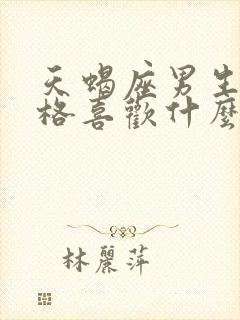 天蝎座男生
格喜歡什麼
林麗萍